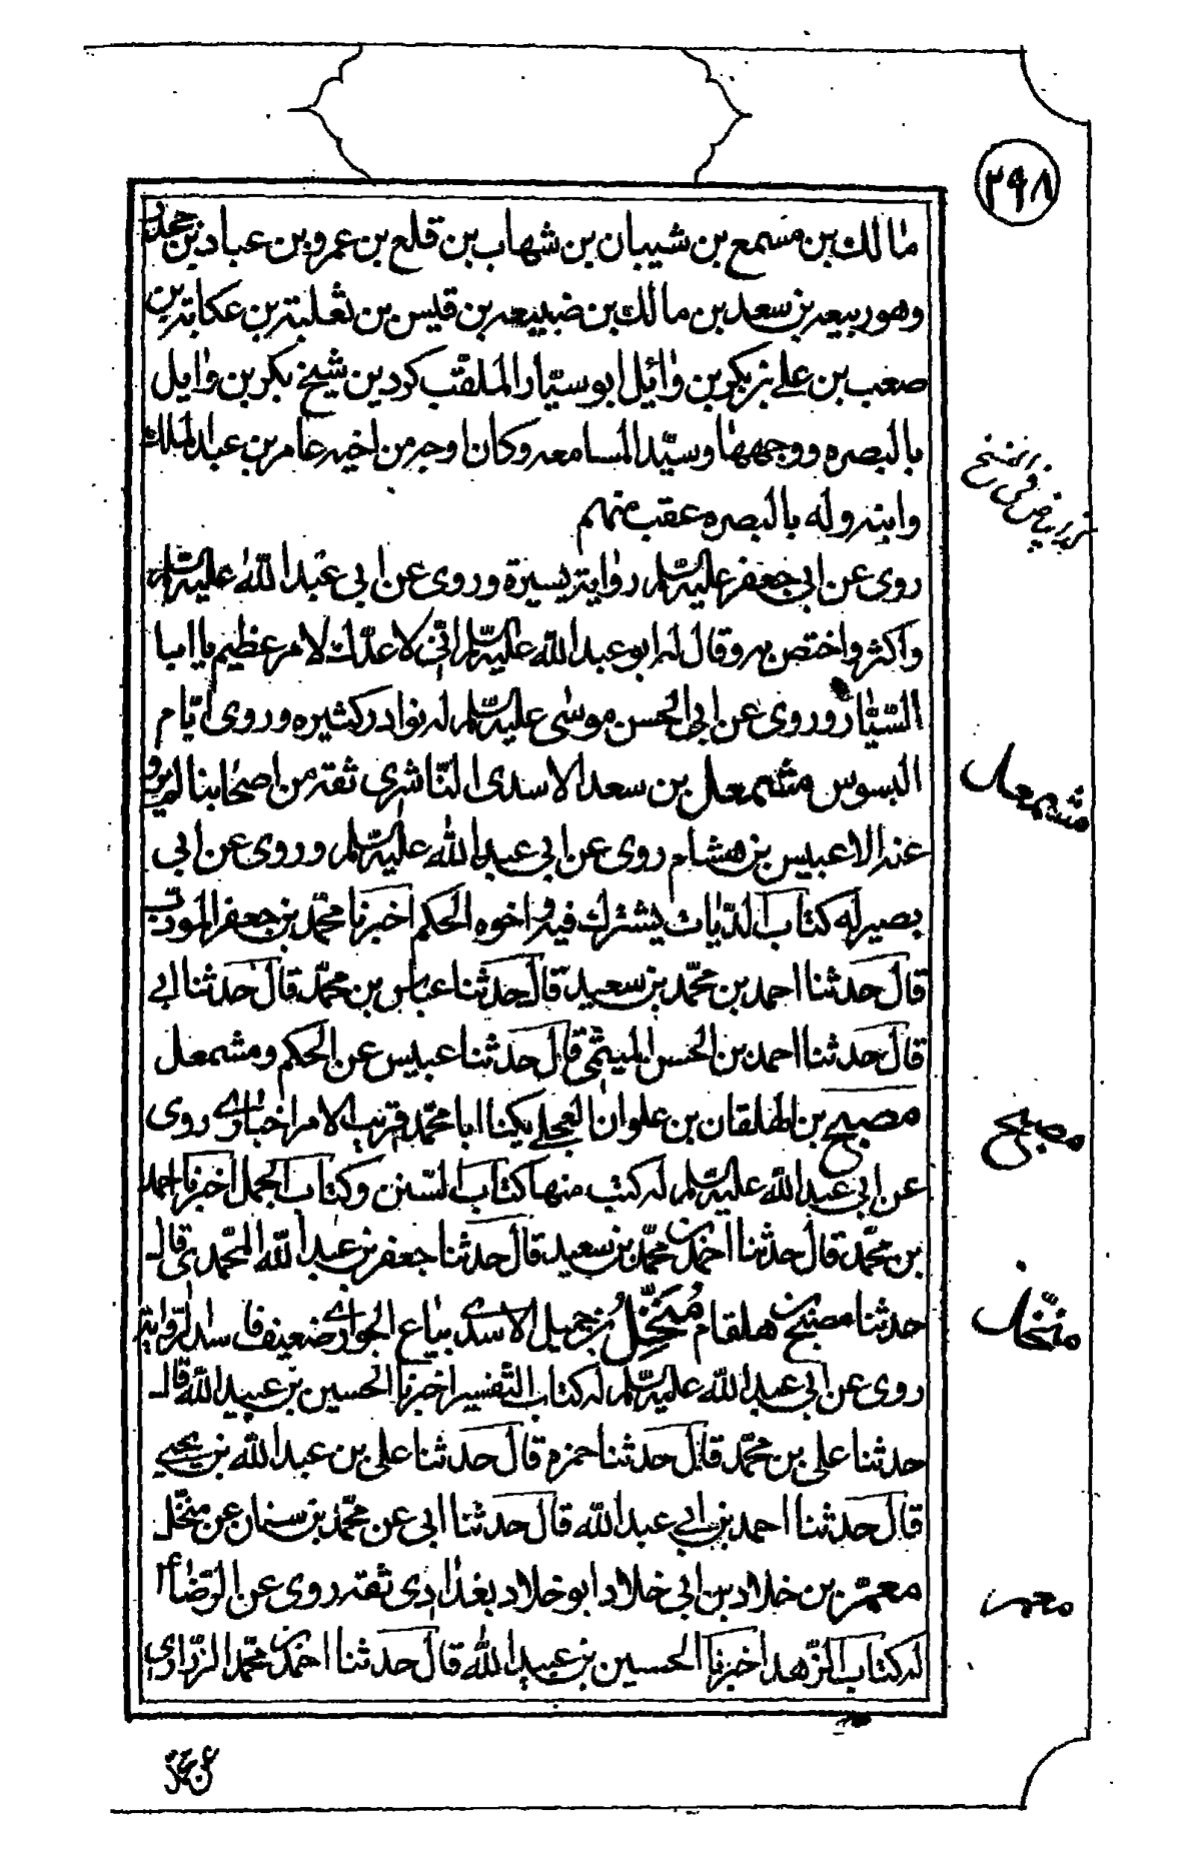 ٢٩٨
مالك بن مسمع بن شيبان بن شهاب بن قلع بن عمرو بن عباد بن جحدر
وهو ربيعه بن سعد بن مالك بن ضبيعه بن قيس بن ثعلبة بن عكابة بن
صعب بن علي بن بكر بن وائل ابو سيّار الملقّب كردين شيخ بكر بن وايل
بالبصره ووجهها وسيّد المسامعه وكان اوجه من اخيه عامر بن عبد الملك
وابنه وله بالبصره عقب منهم
روى عن ابي جعفر عليه السّلم رواية يسيرة وروى عن ابي عبد الله عليه السّلم
واكثر واختص به وقال له ابو عبد الله عليه السّلم انّي لاعدّك لامر عظيم يا ابا
السّيّار وروى عن ابي الحسن موسى عليه السّلم له نوادر كثيره وروى ايّام
البسوس مشمعل بن سعد الاسدى النّاشرى ثقة من اصحابنا لم يرو
عنه الا عبيس بن هشام روى عن ابي عبد الله عليه السّلم وروى عن ابي
بصير له كتاب الدّيات يشترك فيه واخوه الحكم اخبرنا محمّد بن جعفر المودّب
قال حدثنا احمد بن محمّد بن سعيد قال حدثنا عباس بن محمّد قال حدثنا ابي
قال حدثنا احمد بن الحسن الميثمى قال حدثنا عبيس عن الحكم ومشمعل
مصبح بن الهلقان بن علوان العجلي يكنا ابا محمّد قريب الامر اخبارى روى
عن ابي عبد الله عليه السّلم له كتب منها كتاب السّنن وكتاب الجمل اخبرنا احمد
بن محمّد قال حدثنا احمد بن محمّد بن سعيد قال حدثنا جعفر بن عبد الله المحّمدى قال
حدثنا مصبح بن هلقام مُنَخّل بن جميل الاسدى بيّاع الجوارى ضعيف فاسد الرّواية
روى عن ابي عبد الله عليه السّلم له كتاب التّفسير اخبرنا الحسين بن عبيد الله قال
حدثنا على بن محمّد قال حدثنا حمزه قال حدثنا على بن عبد الله بن يحيى
قال حدثنا احمد بن ابي عبد الله قال حدثنا ابى عن محمّد بن سنان عن منخّل
معمّر بن خلاد بن ابى خلاد ابو خلاد بغدادى ثقه روى عن الرّضا ع
له كتاب الزّهد اخبرنا الحسين بن عبيد الله قال حدثنا احمد بن محمّد الزّرارى
مشمعل
مصبح
منخّل
معمر